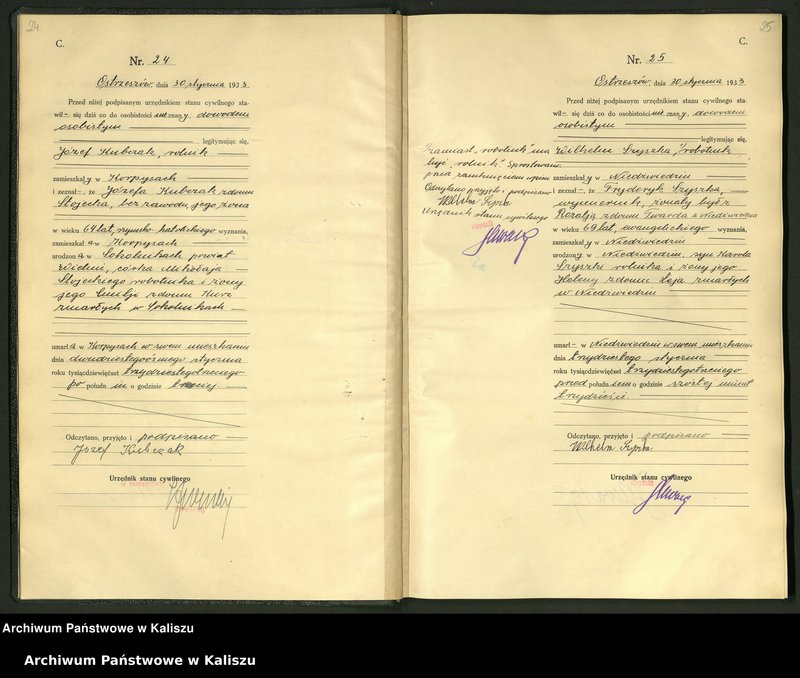 24
C.
Nr. 24
Ostrzeszów, dnia 30 stycznia 1933
Przed niżej podpisanym urzędnikiem stanu cywilnego sta-
wił- się dziś co do osobistości nieznany, dowodem
osobistym
legitymując się,
Józef Kubczak, rolnik
zamieszkały w Korpysach
i zeznał-, że Józefa Kubczak zdomu
Stojecka, bez zawodu, jego żona
w wieku 64 lat, rzymsko katolickiego wyznania,
zamieszkała w Korpysach
urodzona w Sokolnikach powiat
Wieluń, córka Mikołaja
Stojeckiego robotnika i żony
jego Emilji zdomu Kurz
zmarłych w Sokolnikach
umarła w Korpysach w swem mieszkaniu
dnia dwudziestegoósmego stycznia
roku tysiącdziewięćset trzydziestegotrzeciego
po połudn iu o godzinie trzeciej
Odczytano, przyjęto i podpisano
Józef Kubczak
Urzędnik stanu cywilnego
25
C.
Nr. 25
Ostrzeszów, dnia 30 stycznia 1933
Przed niżej podpisanym urzędnikiem stanu cywilnego sta-
wił- się dziś co do osobistości nieznany, dowodem
osobistym
legitymując się,
Wilhelm Szyszka, robotnik
zamieszkały w Niedźwiedziu
i zeznał-, że Fryderyk Szyszka,
wymiernik, żonaty był z
Rozalją zdomu Twarda z Niedźwiedzia
w wieku 69 lat, ewangelickiego wyznania,
zamieszkały w Niedźwiedziu
urodzony w Niedźwiedziu, syn Karola
Szyszki rolnika i żony jego
Heleny zdomu Łoja zmarłych
w Niedźwiedziu
umarł- w Niedźwiedziu w swem mieszkaniu
dnia trzydziestego stycznia
roku tysiącdziewięćset trzydziestegotrzeciego
przed południem o godzinie szóstej minut
trzydzieści
Odczytano, przyjęto i podpisano
Wilhelm
Urzędnik stanu cywilnego
Zamiast "robotnik" ma
być "rolnik". Sprostowano
przed zamknięciem wpisu
Odczytano przyjęto i podpisano
Wilhelm
Urzędnik stanu cywilnego
Archiwum Państwowe w Kaliszu
Archiwum Państwowe w Kaliszu